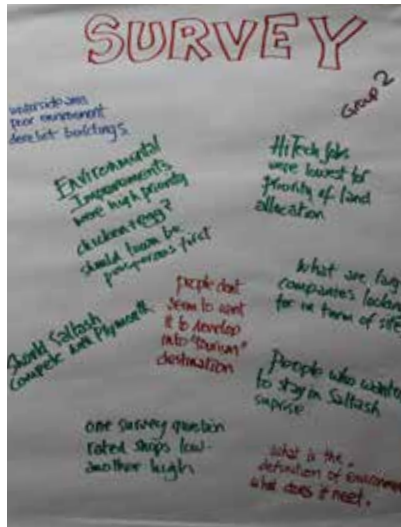 SURVEY
Group 2
waterside area
poor environment
derelict buildings
Environmental
Improvements
were high priority
chicken + egg?
should town be
prosperous first
HiTech Jobs
were lowest for
priority of land
allocation
What are
companies looking
for in term of site
Should Saltash
compete with Plymouth
people dont
seem to want
it to develop
into "tourism"
destination
People who want
to stay in Saltash
suprise
one survey question
rated shops low -
another high
what is the
definition of Environment
what does it need.